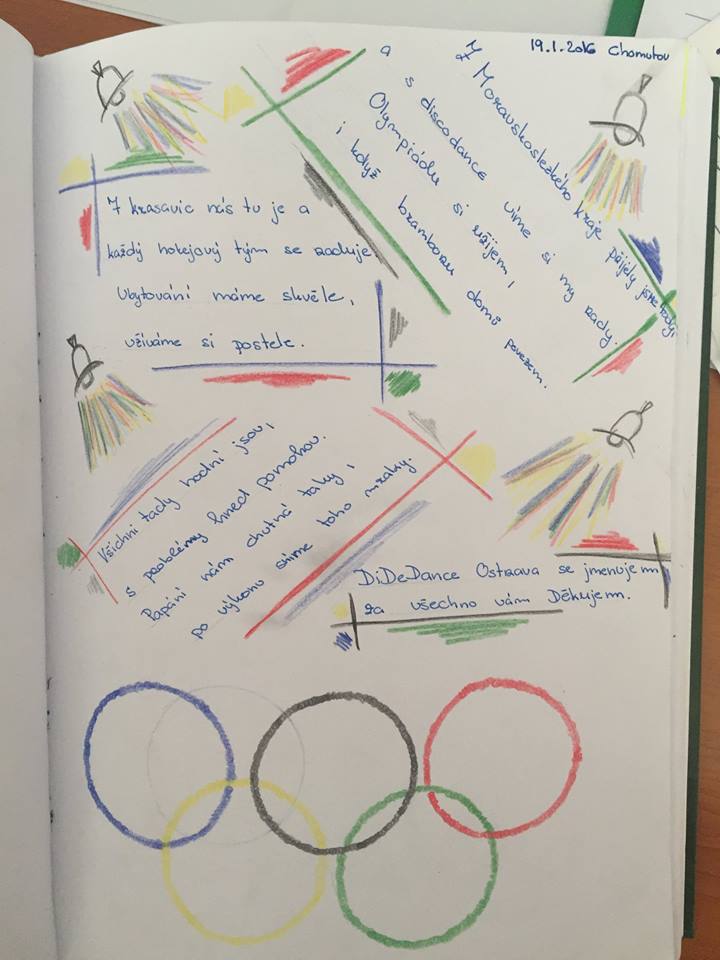 19.1.2016 Chomutov
Z Moravskoslezkého kraje přijely jsme tady,
a s discodance víme si my rady.
Olympiádu si užijem,
i když bramboru domů povezem.
7 krasavic nás tu je a
každý hokejový tým se raduje.
Ubytování máme skvěle,
užíváme si postele.
Všichni tady hodní jsou,
s problémy hned pomohou.
Papání nám chutná taky,
po výkonu sníme toho mraky.
DiDeDance Ostrava se jmenujem
za všechno vám Děkujem.